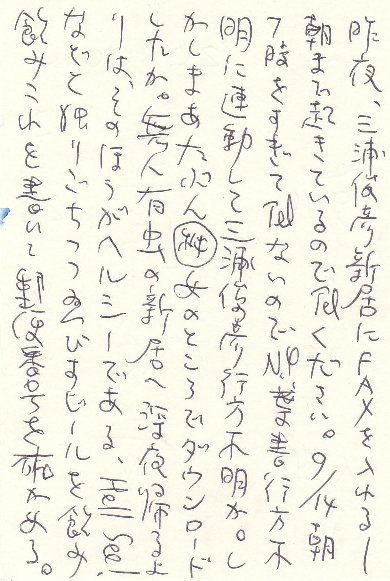 昨夜、三浦俊彦新居にFAXを入れるー
朝まで起きているのでTELください。9/14朝
7時をすぎてTELないのでN.Y.行方不
明に連動して三浦俊彦行方不明か。し
かしまあたぶん 女のところでダウンロード
したか。無人有虫の新居へ深夜帰るよ
りは、そのほうがヘルシーである、
などと独りごちつつゑびすビールを飲み、
飲みつつこれを書いて郵便番号を確かめる。